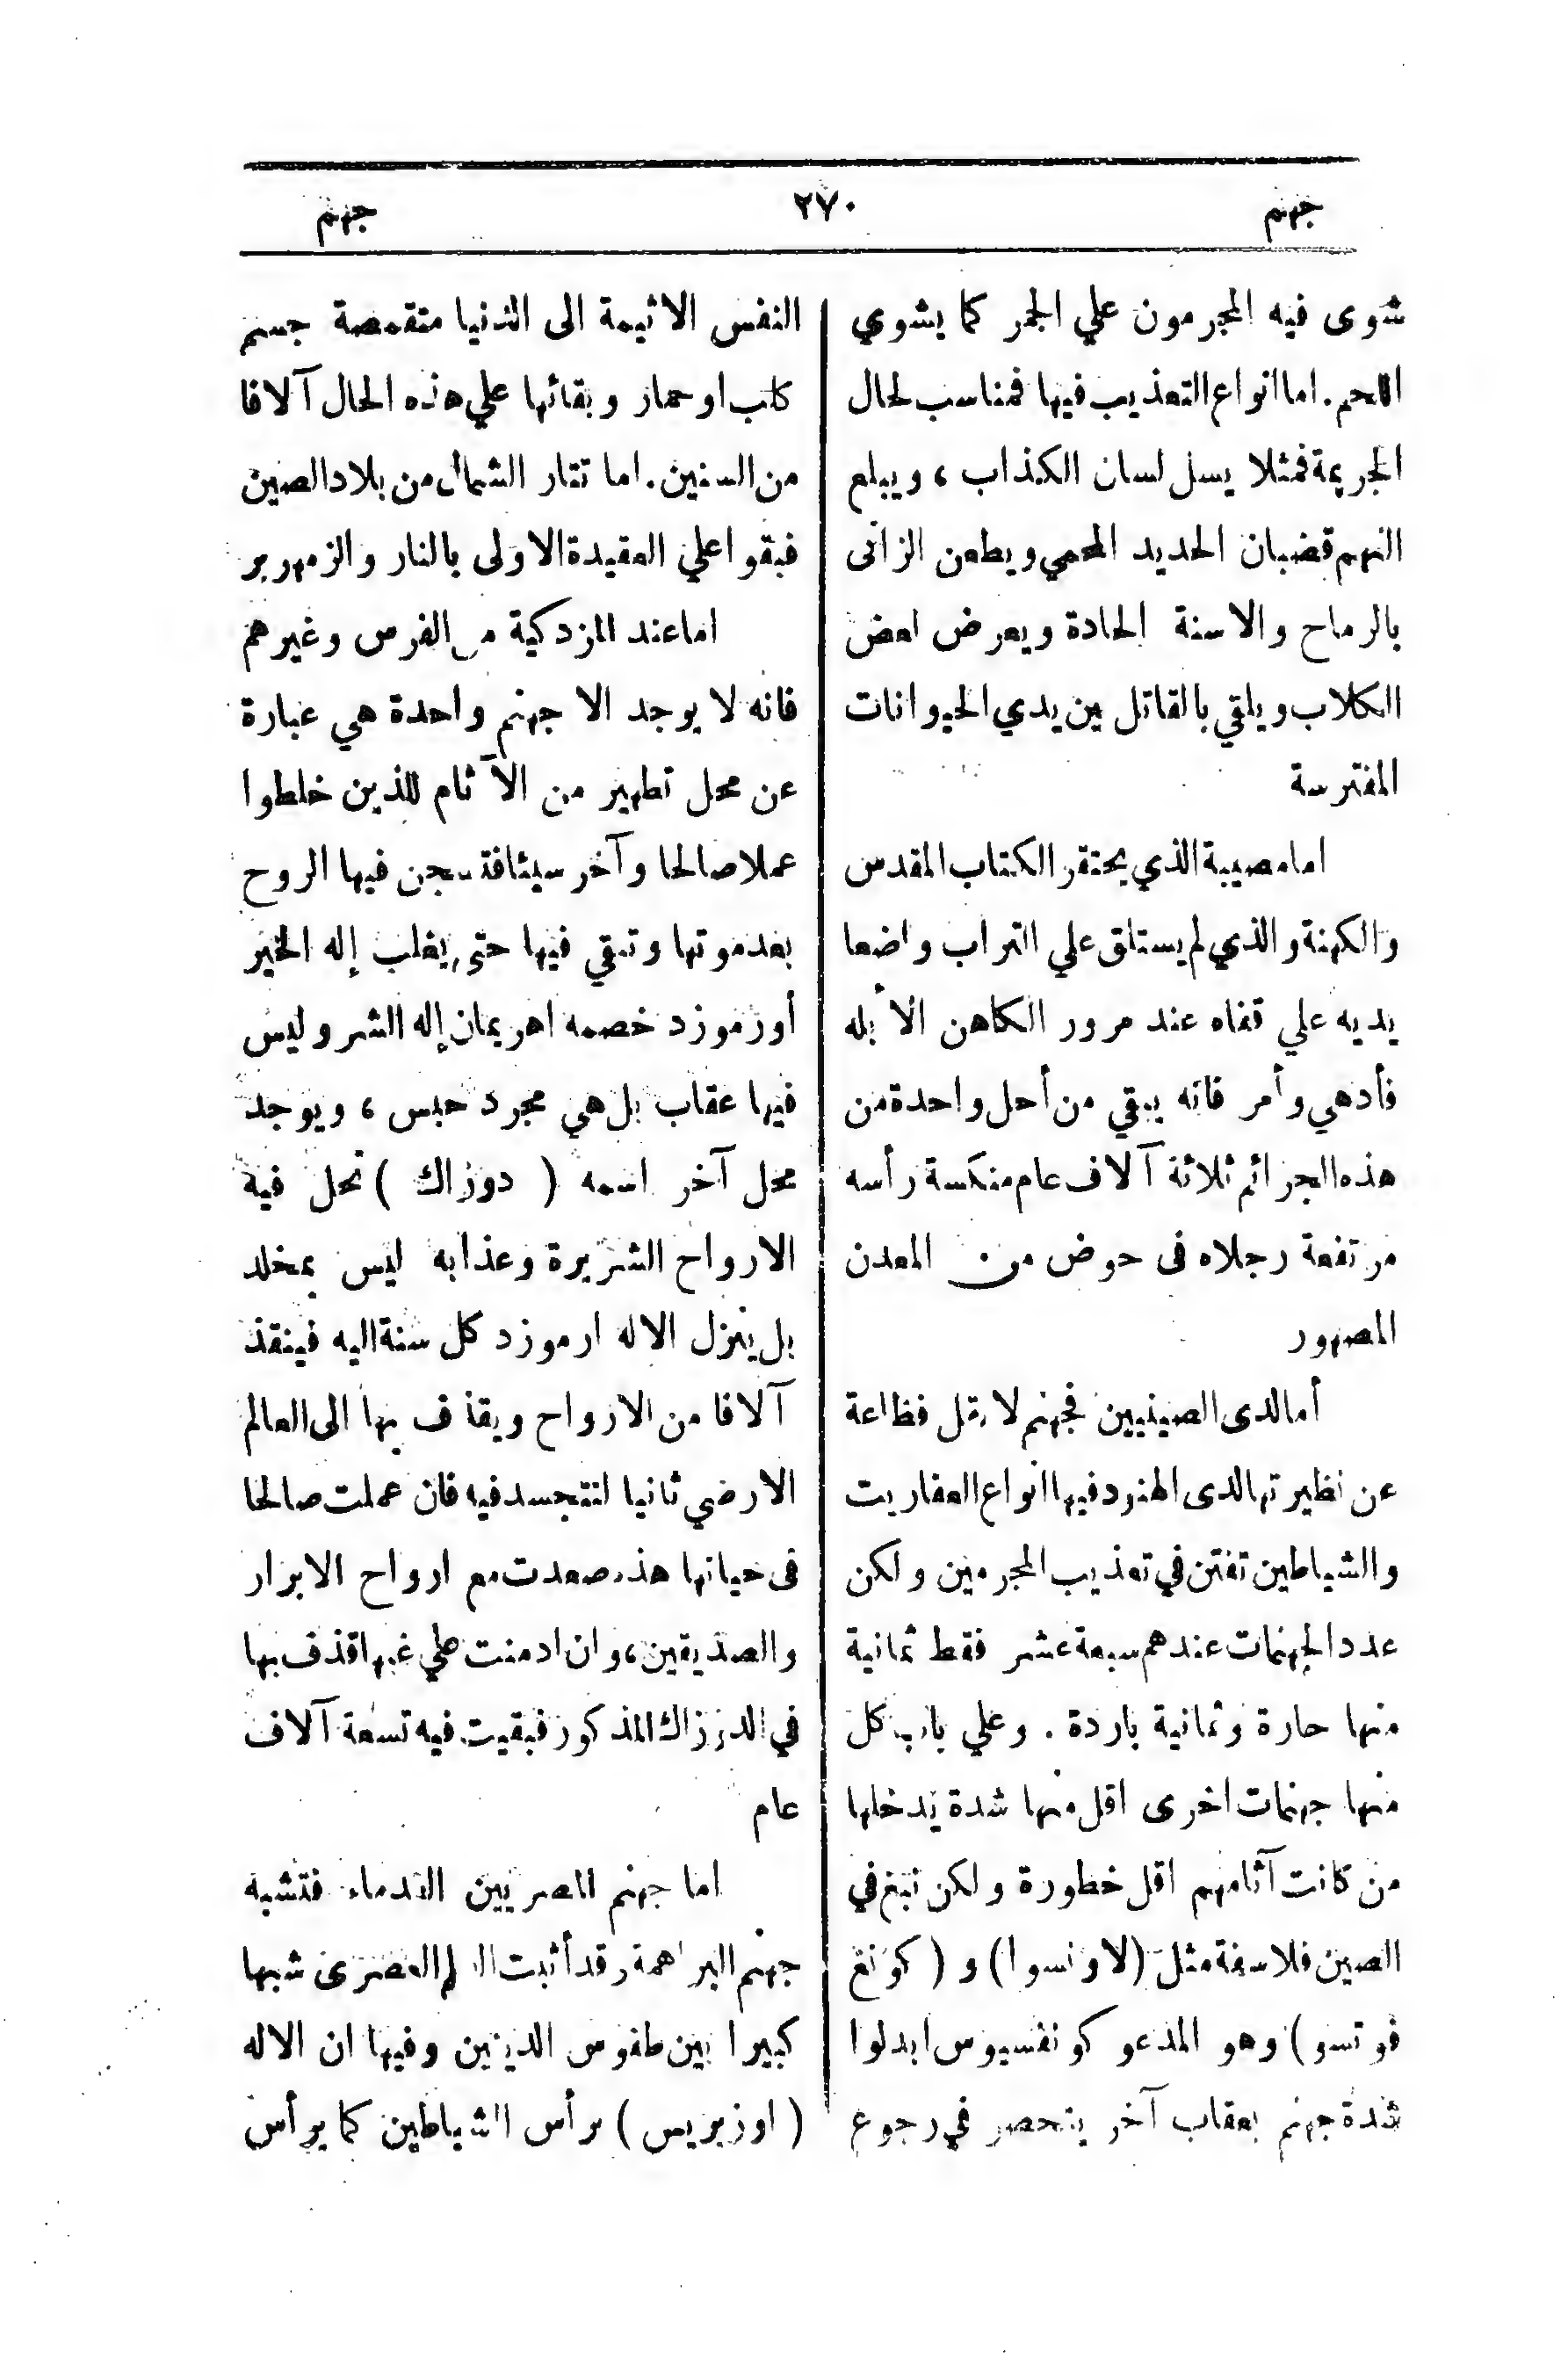 جهنم ٢٧٠ جهنم
شوى فيه المجرمون علي الجمر كما يشوي
اللحم. اما انواع التعذيب فيها فمناسب لحال
الجريمة فمثلا يسل لسان الكذاب ، ويبلع
النهم قضبان الحديد المحمي ويطعن الزانى
بالرماح والاسنة الحادة ويعرض لعض
الكلاب ويلقي بالقاتل بين يدي الحيوانات
المفترسة
اما مصيبة الذي يحتقر الكتاب المقدس
والكهنة والذي لم يستلق علي التراب واضعا
يديه علي قفاه عند مرور الكاهن الأبله
فأدهي وأمر فانه يبقي من أحل واحدة من
هذه الجرائم ثلاثة آلاف عام منكسة رأسه
مرتفعة رجلاه فى حوض من المعدن
المصهور
أما لدى الصينيين فجهنم لا تقل فظاعة
عن نظيرتها لدى الهنود فيها انواع العفاريت
والشياطين تفتن في تعذيب المجرمين ولكن
عدد الجهنمات عندهم سبعة عشر فقط ثمانية
منها حارة وثمانية باردة . وعلي باب كل
منها جهنمات اخرى اقل منها شدة يدخلها
من كانت آثامهم اقل خطورة ولكن نبغ في
الصين فلاسفة مثل (لاونسوا) و (كونغ
فوتسو) وهو المدعو كونفسيوس ابدلوا
شدة جهنم بعقاب آخر ينحصر في رجوع
النفس الاثيمة الى الدنيا متقمصة جسم
كلب او حمار وبقائها علي هذه الحال آلافا
من السنين. اما تتار الشمال من بلاد الصين
فبقوا علي العقيدة الاولى بالنار والزمهرير
اما عند المزدكية من الفرس وغيرهم
فانه لا يوجد الا جهنم واحدة هي عبارة
عن محل تطهير من الآثام للذين خلطوا
عملا صالحا وآخر سيئا فتسجن فيها الروح
بعد موتها وتبقي فيها حتى يغلب إله الخير
أورموزد خصمه اهريمان إله الشر وليس
فيها عقاب بل هي مجرد حبس ، ويوجد
محل آخر اسمه ( دوزاك ) تحل فيه
الارواح الشريرة وعذابه ليس بمخلد
بل ينزل الاله ارموزد كل سنة اليه فينقذ
آلافا من الارواح ويقذف بها الى العالم
الارضي ثانيا لتتجسد فيه فان عملت صالحا
فى حياتها هذه صعدت مع ارواح الابرار
والصديقين، وان ادمنت علي غيها قذف بها
في الدوزاك المذكور فبقيت فيه تسعة آلاف
عام
اما جهنم المصريين القدماء فتشبه
جهنم البراهمة وقد أثبت العلم العصرى شبها
كبيرا بين طقوس الدينين وفيها ان الاله
( اوزيريس ) يرأس الشياطين كما يرأس